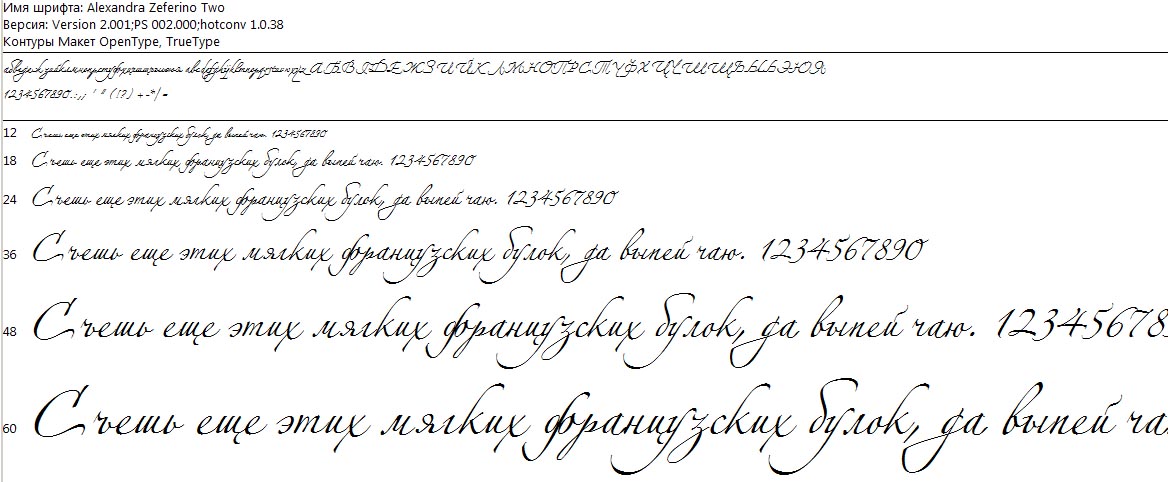 Имя шрифта: Alexandra Zeferino Two
Версия: Version 2.001;PS 002.000;hotconv 1.0.38
Контуры Макет OpenType, TrueType
абвгдежзийклмнопрстуфхцчшщъыьэюя abcdefghijklmnopqrstuvwxyz АБВГДЕЖЗИЙКЛМНОПРСТУФХЦЧШЩЪЫЬЭЮЯ
1234567890.:,; ' " (!?) +-*/=
12 Съешь еще этих мягких французских булок, да выпей чаю. 1234567890
18 Съешь еще этих мягких французских булок, да выпей чаю. 1234567890
24 Съешь еще этих мягких французских булок, да выпей чаю. 1234567890
36 Съешь еще этих мягких французских булок, да выпей чаю. 1234567890
48 Съешь еще этих мягких французских булок, да выпей чаю. 12345678
60 Съешь еще этих мягких французских булок, да выпей ча